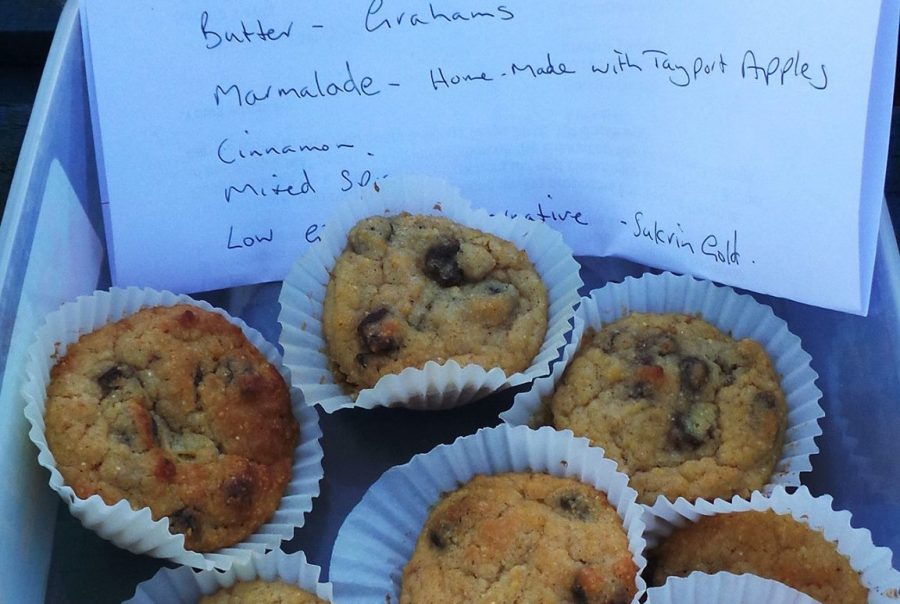 Butter - Grahams
Marmalade - Home-Made with Tayport Apples
Cinnamon.
Mixed
Low - Sukrin Gold.